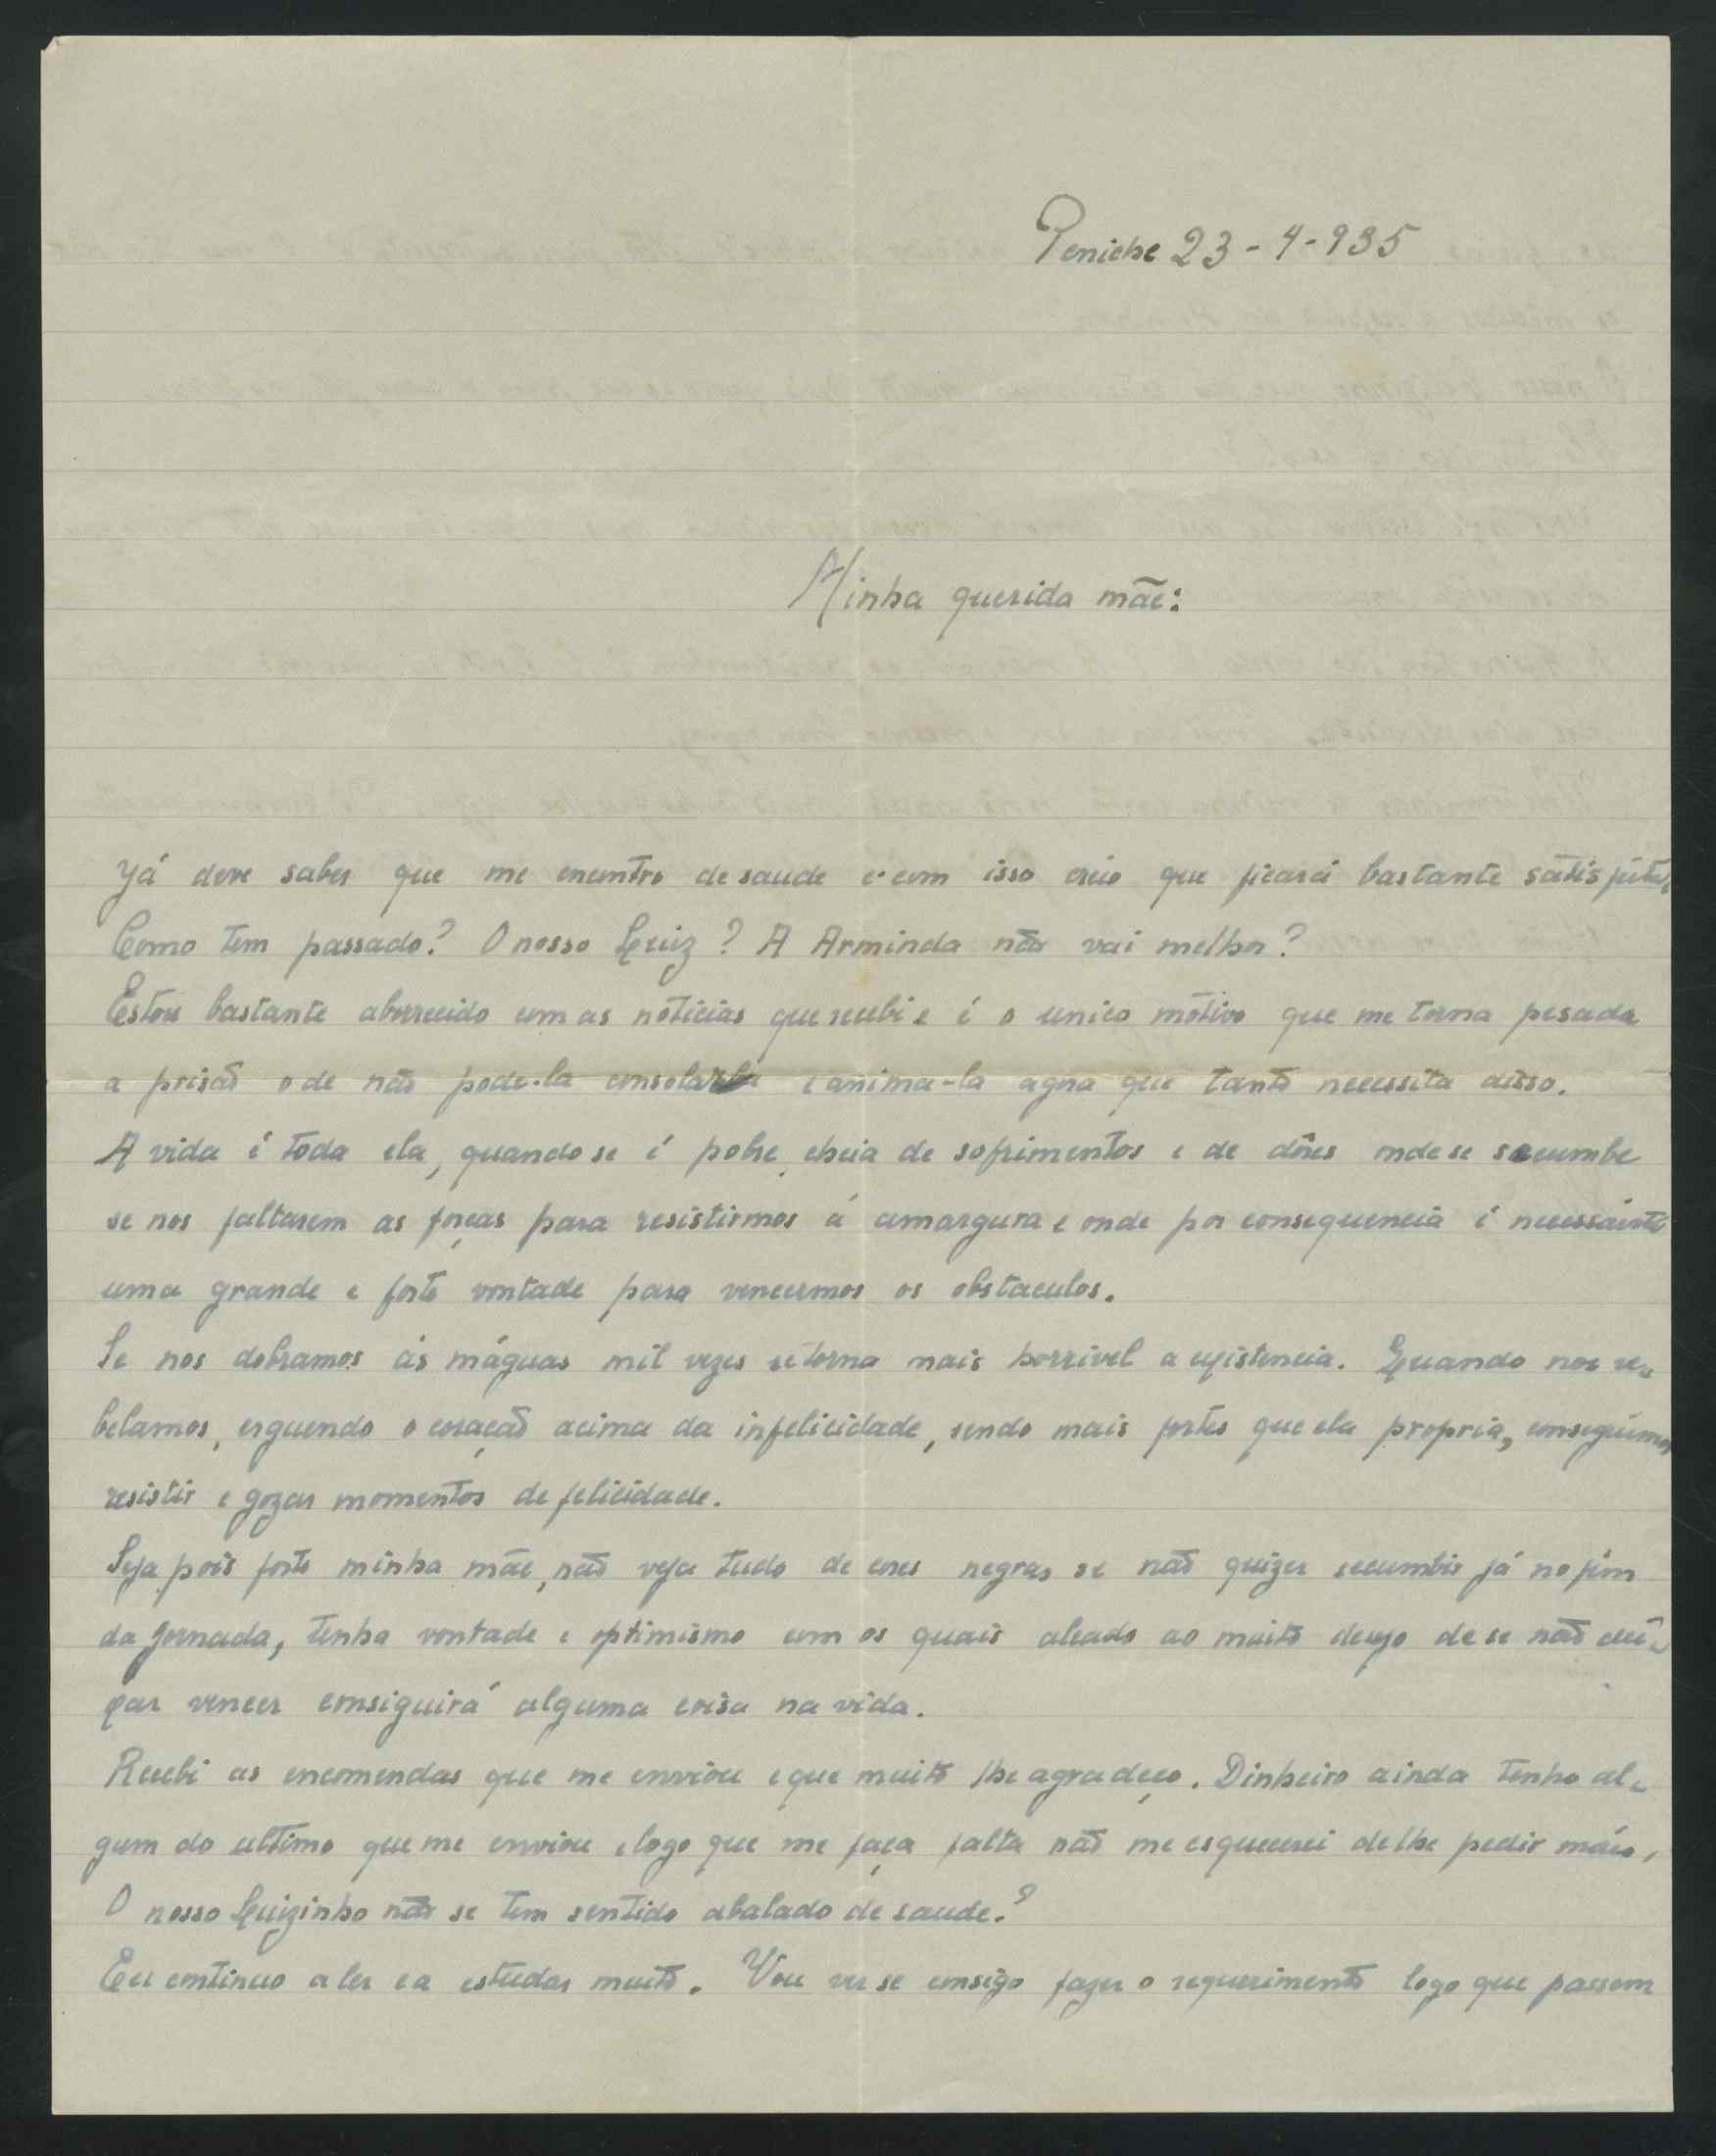 Peniche 23-4-935
Minha querida mãe:
Já deve saber que me encontro de saude e com isso creio que ficará bastante satisfeita.
Como tem passado? O nosso Luiz? A Arminda não vai melhor?
Estou bastante aborrecido com as noticias que recebi e é o unico motivo que me torna pesada
a prisão o de não pode-la consolar e anima-la agora que tanto necessita disso.
A vida é toda ela, quando se é pobre, cheia de sofrimentos e de dôres onde se sucumbe
se nos faltarem as forças para resistirmos á amargura e onde por consequencia é necessário
uma grande e forte vontade para vencermos os obstaculos.
Se nos dobramos ás máguas mil vezes se torna mais horrivel a existencia. Quando nos re-
belamos, erguendo o coração acima da infelicidade, sendo mais fortes que ela propria, conseguimos
resistir e gozar momentos de felicidade.
Seja pois forte minha mãe, não veja tudo de cores negras se não quizer sucumbir já no fim
da jornada, tenha vontade e optimismo com os quais aleado ao muito desejo de se não dei-
xar vencer consiguirá alguma coisa na vida.
Recebi as encomendas que me enviou e que muito lhe agradeço. Dinheiro ainda tenho al-
gum do ultimo que me enviou e logo que me faça falta não me esquecerei de lhe pedir mais.
O nosso Luizinho não se tem sentido abalado de saude?
Eu continuo a ler e a estudar muito. Vou ver se consigo fazer o requerimento logo que passem